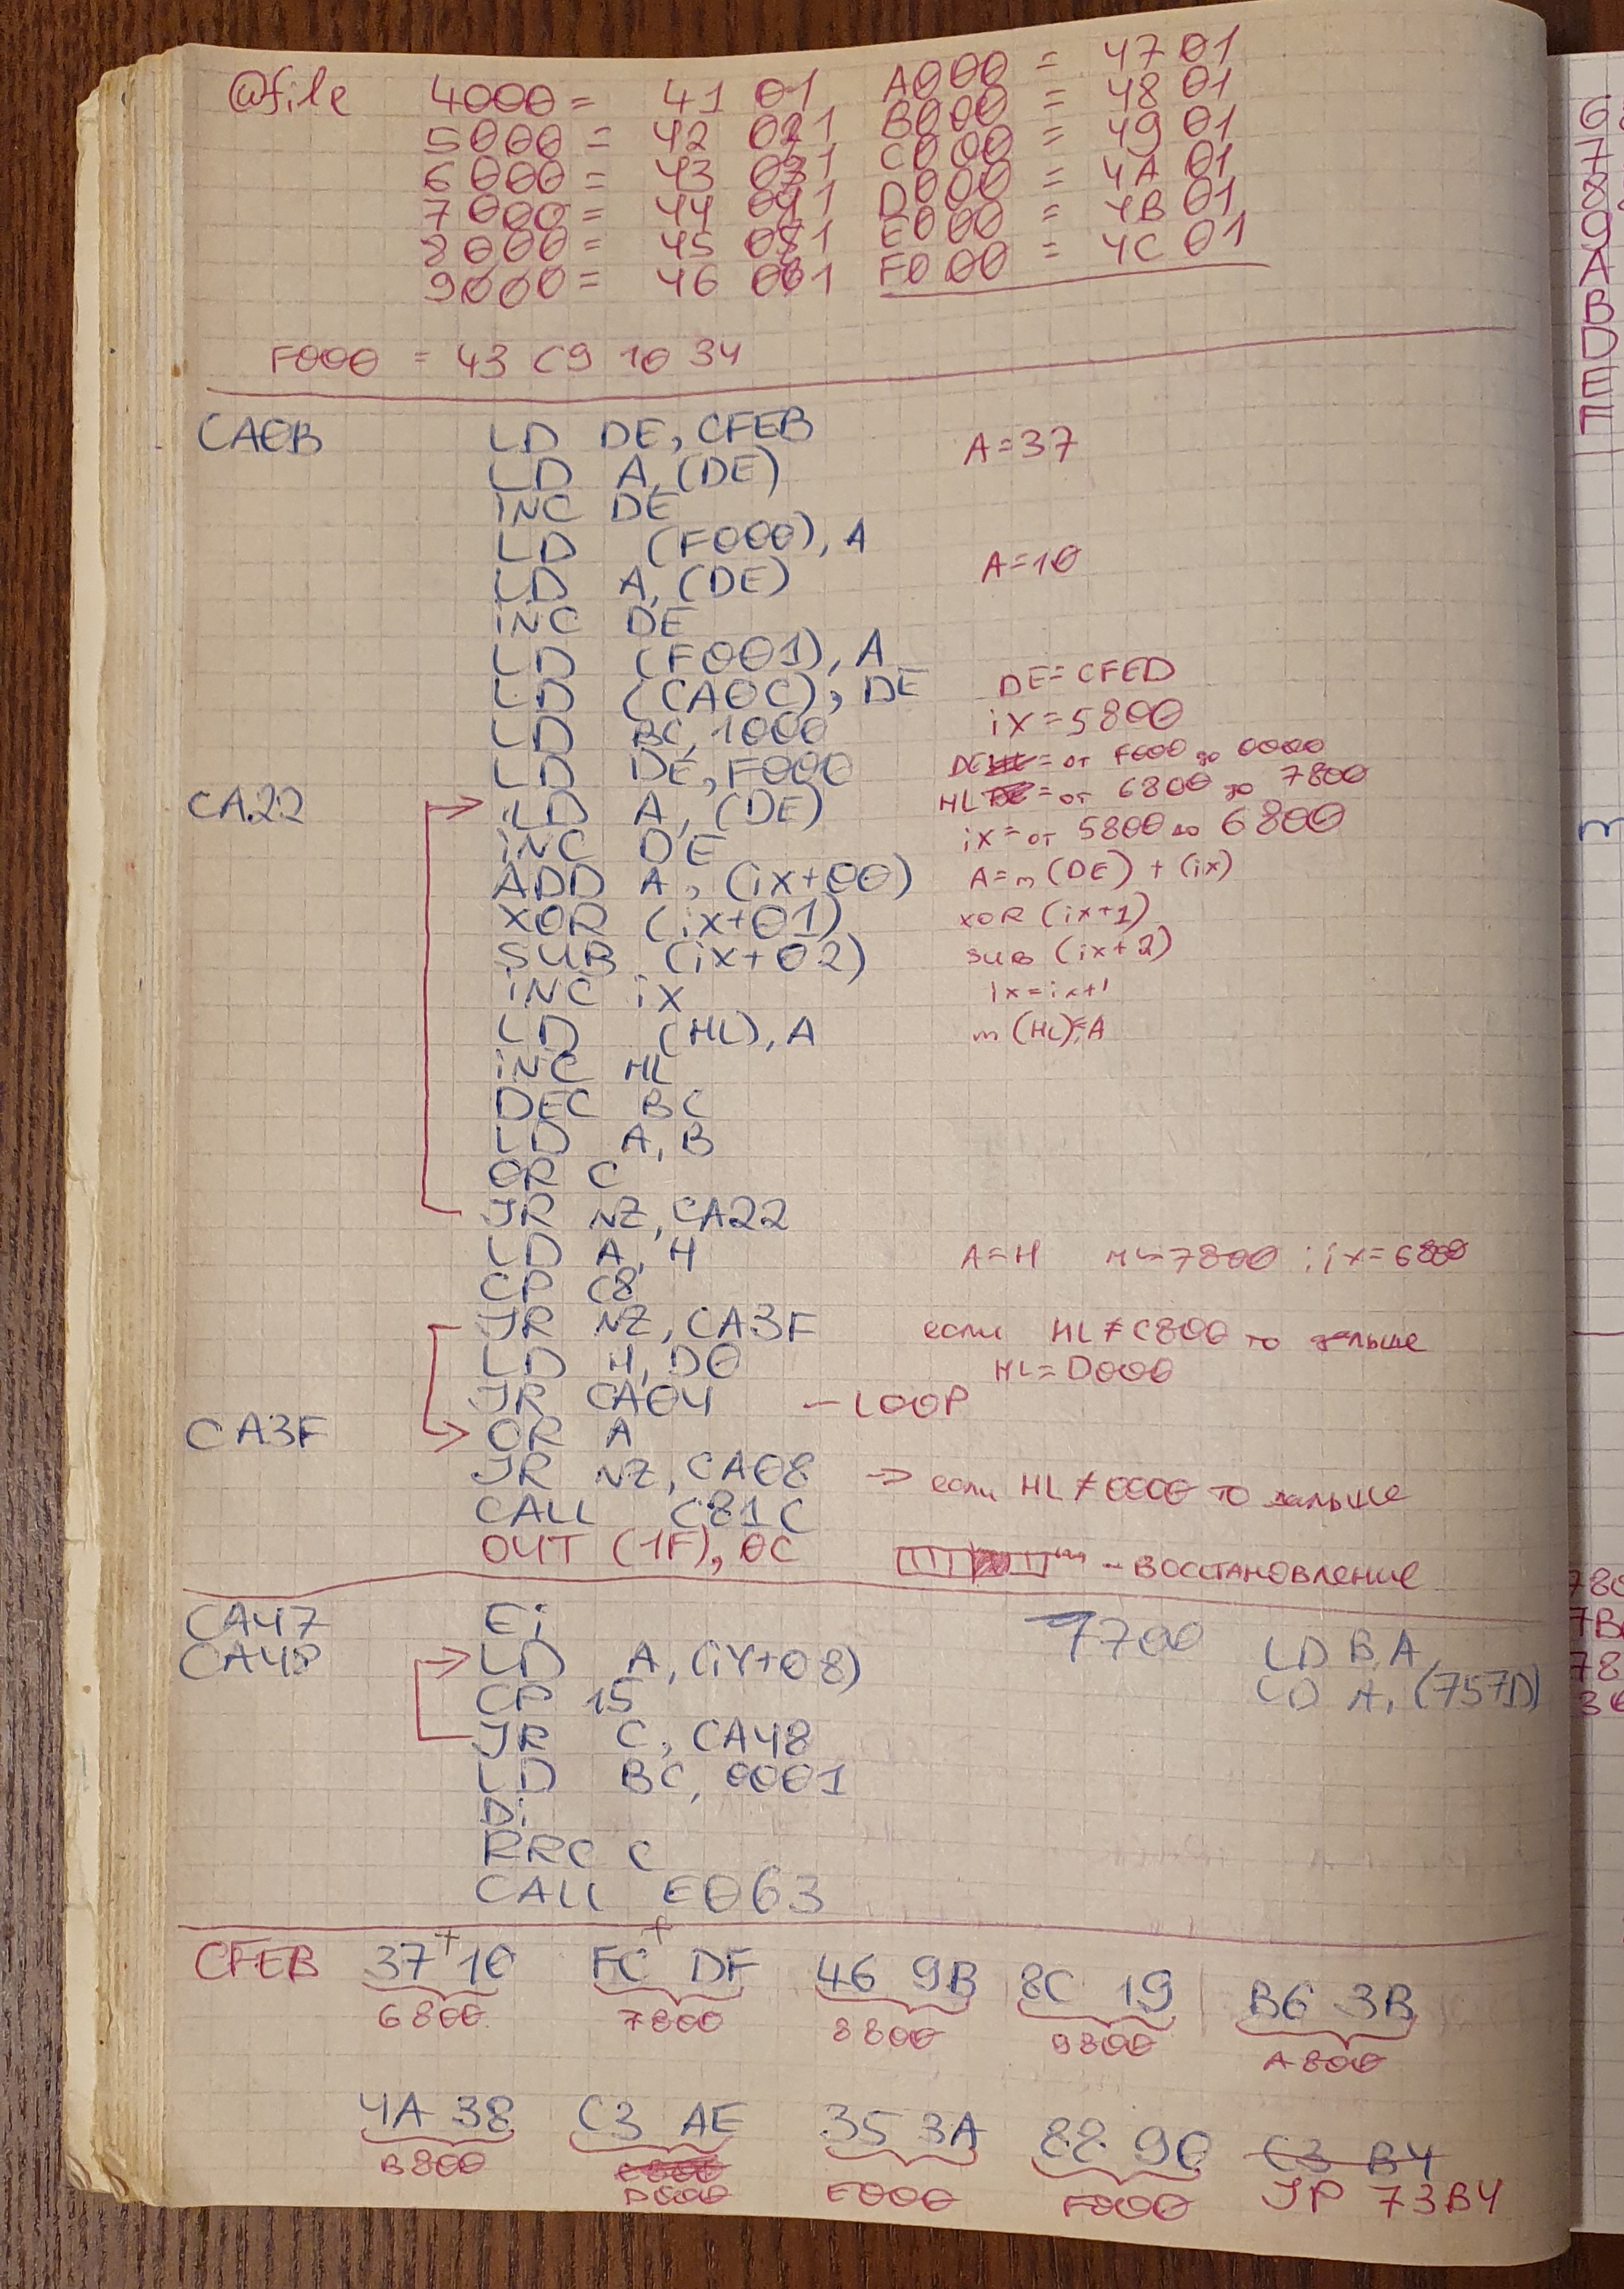 @file 4000 = 41 01 A000 = 4701
5000 = 42 01 B000 = 4801
6000 = 43 01 C000 = 4901
7000 = 44 01 D000 = 4A 01
8000 = 45 01 E000 = 4B 01
9000 = 46 01 F000 = 4C 01
F000 = 43 C9 10 34
CA0B LD DE, CFEB A=37
LD A, (DE)
INC DE
LD (F000), A
LD A, (DE) A=10
INC DE
LD (F001), A
LD (CA0C), DE DE=CFED
LD BC, 1000 ix=5800
LD DE, F000 DE = от F000 до 0000
HL = от 6800 до 7800
CA22 LD A, (DE) ix= от 5800 до 6800
INC DE
ADD A, (ix+00) A=m (DE) + (ix)
XOR (ix+01) XOR (ix+1)
SUB (ix+02) SUB (ix+2)
INC iX ix=ix+1
LD (HL), A m (HL)=A
INC HL
DEC BC
LD A, B
OR C
JR NZ, CA22
LD A, H A=H HL=7800 ; ix=6800
CP C8
JR NZ, CA3F если HL≠C800 то дальше
LD H, D0 HL=D000
JR CA04 - LOOP
CA3F OR A
JR NZ, CA08 -> если HL≠0000 то дальше
CALL C81C
OUT (1F), 0C - ВОССТАНОВЛЕНИЕ
CA47 Ei 7700 LD B,A
CA48 LD A, (iY+08) LD A, (757D)
CP 15
JR C, CA48
LD BC, 0001
Di
RRC C
CALL E063
CFEB 37+10 FC+DF 46 9B 8C 19 B6 3B
6800 7800 8800 9800 A800
4A 38 C3 AE 35 3A 88 90 C3 B4
B800 C800 E000 F000 JP 73B4
D000